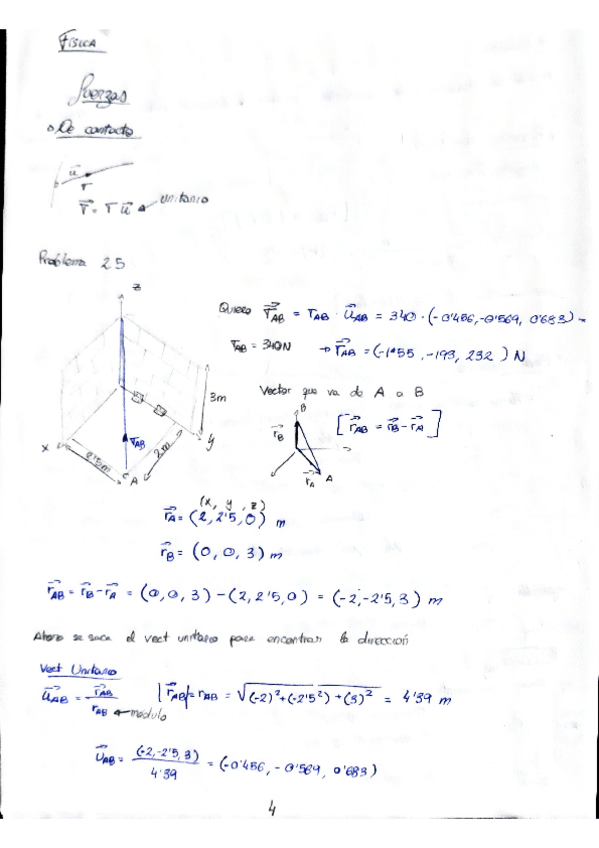 FÍSICA
Fuerzas
De contacto
u⃗
T
T⃗ = T u⃗ ← unitario
Problema 25
z
Quiero T⃗AB = TAB · u⃗AB = 340 · (-0'456, -0'569, 0'683) =
TAB = 340N → T⃗AB = (-155, -193, 232) N
3m
Vector que va de A a B
B
[r⃗AB = r⃗B - r⃗A]
r⃗B
TAB
x
y
2'5m
2m
A
r⃗A
A
(x, y, z)
r⃗A = (2, 2'5, 0) m
r⃗B = (0, 0, 3) m
r⃗AB = r⃗B - r⃗A = (0, 0, 3) - (2, 2'5, 0) = (-2, -2'5, 3) m
Ahora se saca el vect unitario para encontrar la dirección
Vect Unitario
u⃗AB = r⃗AB / rAB ← módulo |r⃗AB| = rAB = √(-2)²+(-2'5²)+(3)² = 4'39 m
u⃗AB = (-2, -2'5, 3) / 4'39 = (-0'456, -0'569, 0'683)
4